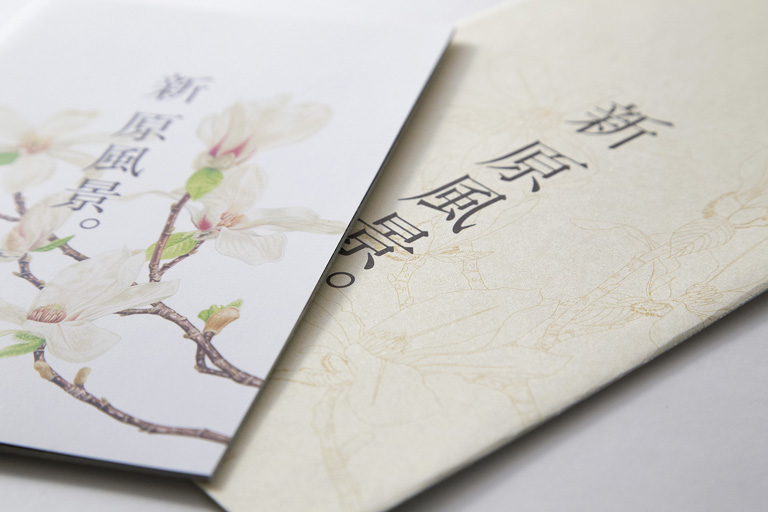 新原風景。
新原風景。